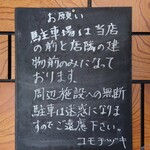 お願い
駐車場は当店
の前と店隣の建
物前のみになって
おります。
周辺施設への無断
駐車は迷惑になりま
すのでご遠慮下さい。
コモチヅキ